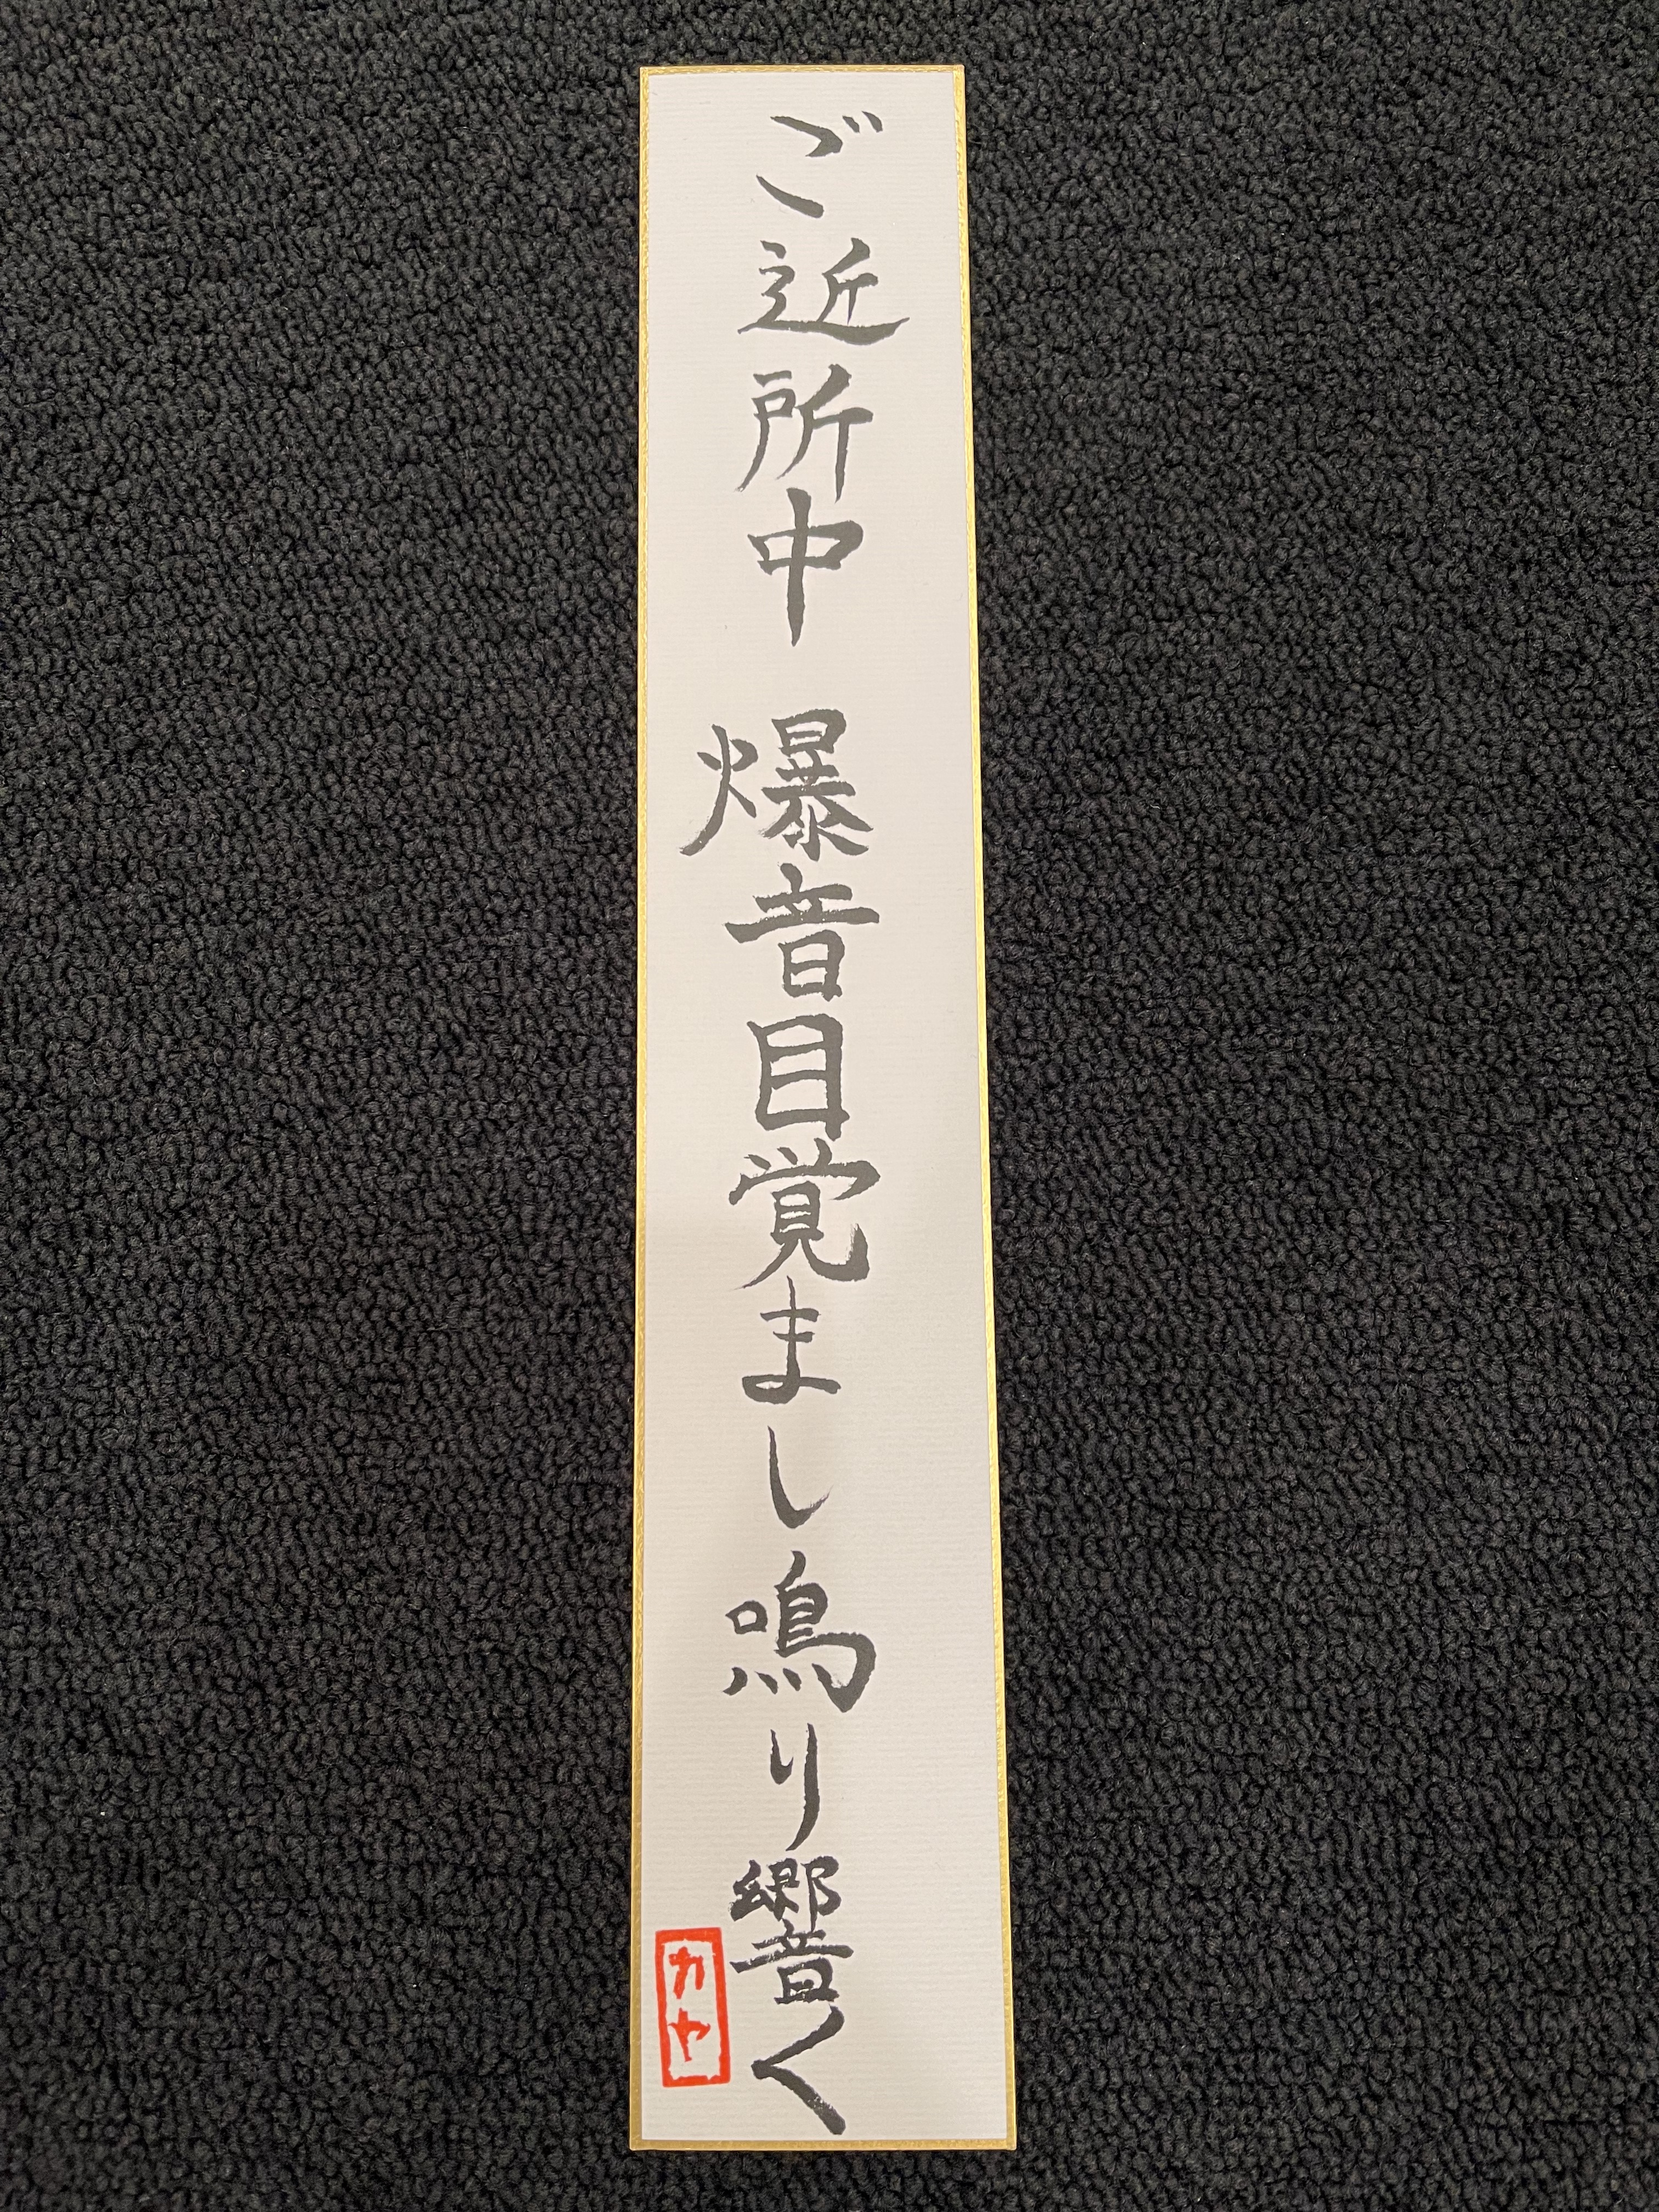 ご近所中 爆音目覚まし鳴り響く
カヤ